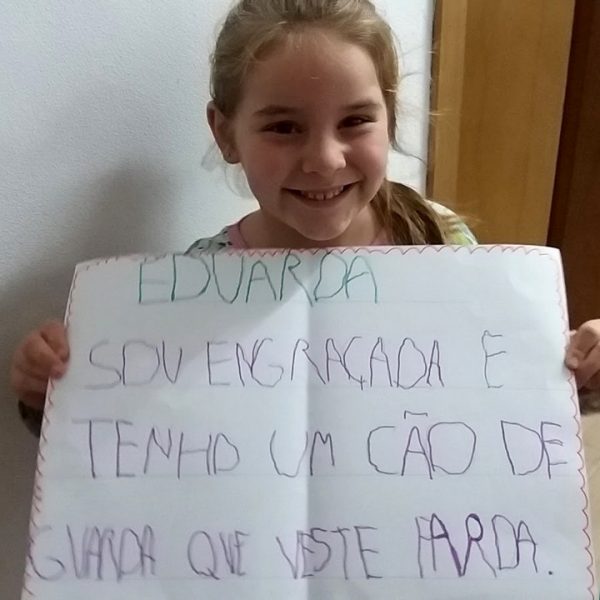 EDUARDA
SOU ENGRAÇADA E
TENHO UM CÃO DE
GUARDA QUE VESTE FARDA.